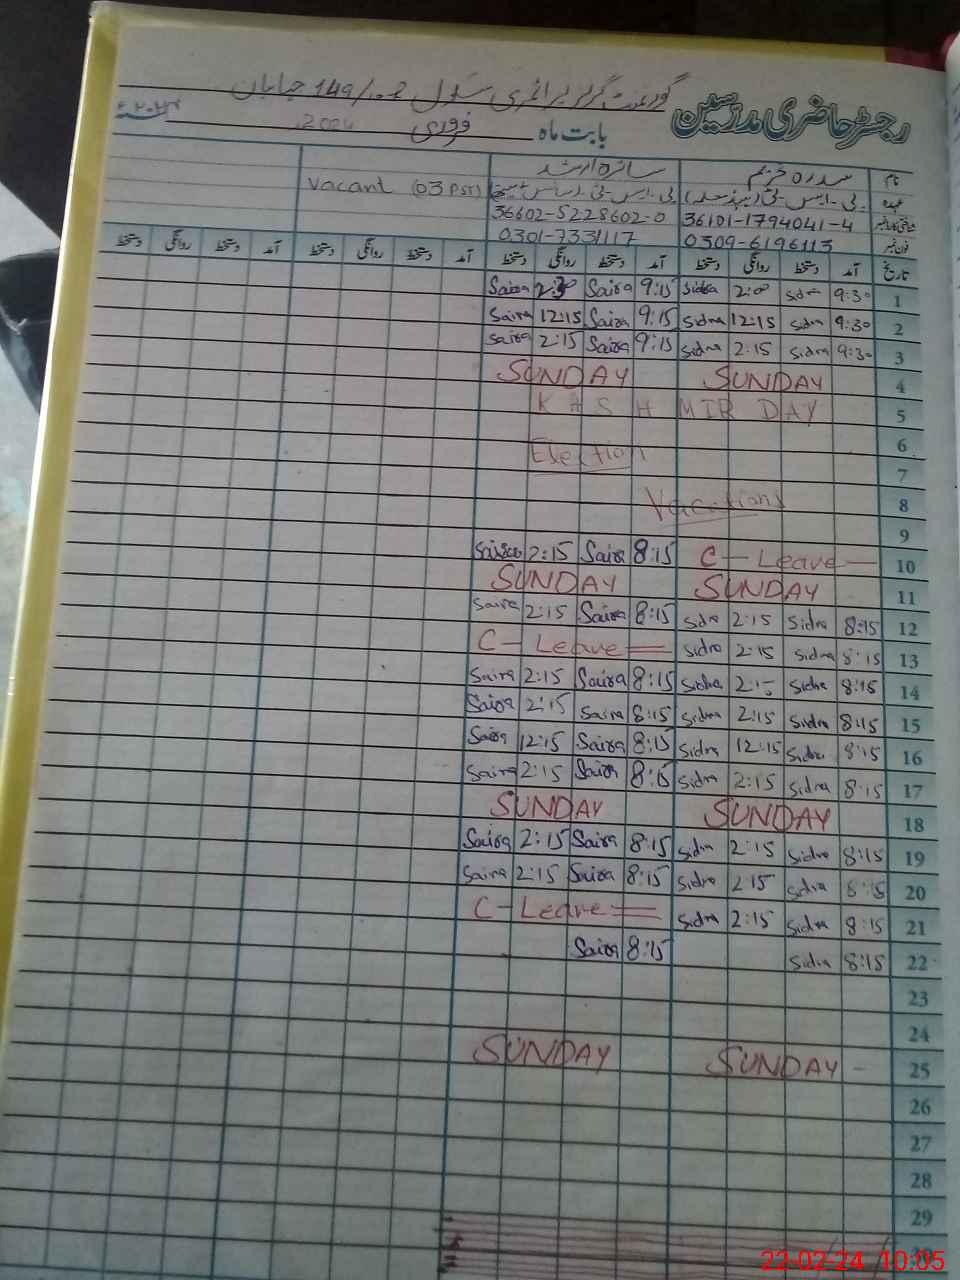 رجسٹر حاضری مدرسین
گورنمنٹ گرلز پرائمری سکول
بابت ماہ فروری
نام سدرہ سائرہ ارشد
عہدہ Vacant (03 PST)
36101-1794041-4 36602-5228602-0
فون نمبر 0309-6196113 0301-7331117
تاریخ آمد دستخط روانگی دستخط آمد دستخط روانگی دستخط آمد دستخط روانگی دستخط آمد دستخط روانگی دستخط
1 9:30 Sidra 2:00 Sidra 9:15 Saira Saira
2 9:30 Sidra 12:15 Sidra 9:15 Saira 12:15 Saira
3 9:30 Sidra 2:15 Sidra 9:15 Saira 2:15 Saira
4 SUNDAY SUNDAY
5 KASHMIR DAY
6 Election
7
8 Vacations
9
10 C-Leave 8:15 Saira 2:15 Saira
11 SUNDAY SUNDAY
12 8:15 Sidra 2:15 Sidra 8:15 Saira 2:15 Saira
13 8:15 Sidra 2:15 Sidra C-Leave
14 8:15 Sidra 2:15 Sidra 8:15 Saira 2:15 Saira
15 8:15 Sidra 2:15 Sidra 8:15 Saira 2:15 Saira
16 8:15 Sidra 12:15 Sidra 8:15 Saira 12:15 Saira
17 8:15 Sidra 2:15 Sidra 8:15 Saira 2:15 Saira
18 SUNDAY SUNDAY
19 8:15 Sidra 2:15 Sidra 8:15 Saira 2:15 Saira
20 8:15 Sidra 2:15 Sidra 8:15 Saira 2:15 Saira
21 8:15 Sidra 2:15 Sidra C-Leave
22 8:15 Sidra 8:15 Saira
23
24
25 SUNDAY SUNDAY
26
27
28
29
22-02-24 10:05